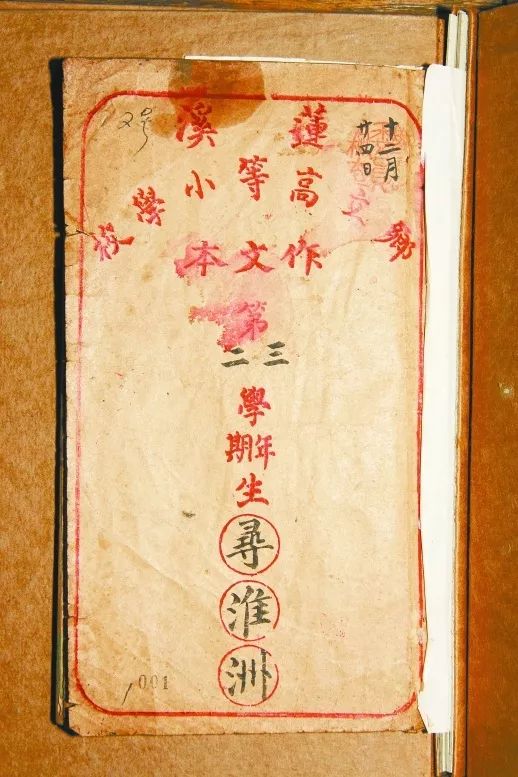 十二月
廿四日
12号
立
蓮溪
高等小
學校
作文本
第
三二
學
年期
生
尋淮洲
001